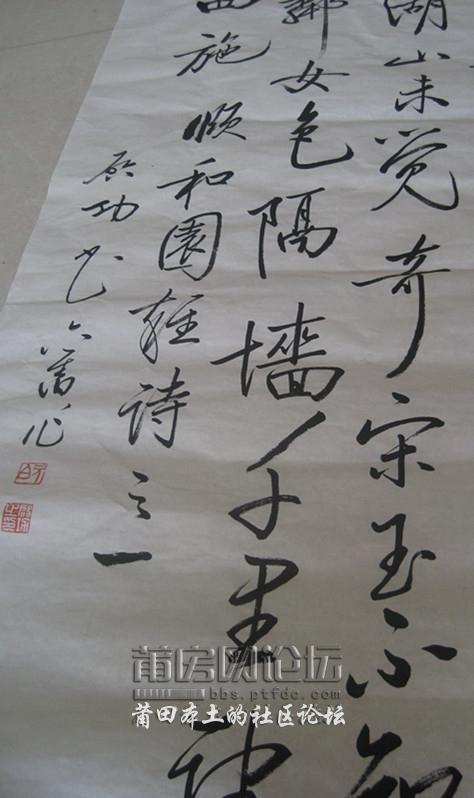 湖山未觉奇宋玉不知
邻女色隔墙千里
西施 颐和园杂诗之一
启功书六旧作
莆房网论坛
bbs.ptfdc.com
莆田本土的社区论坛